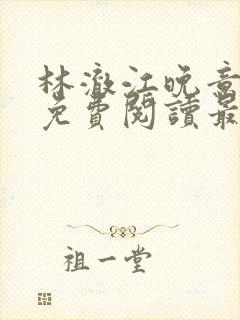 林澈江晚意
免費閱讀最
祖一堂